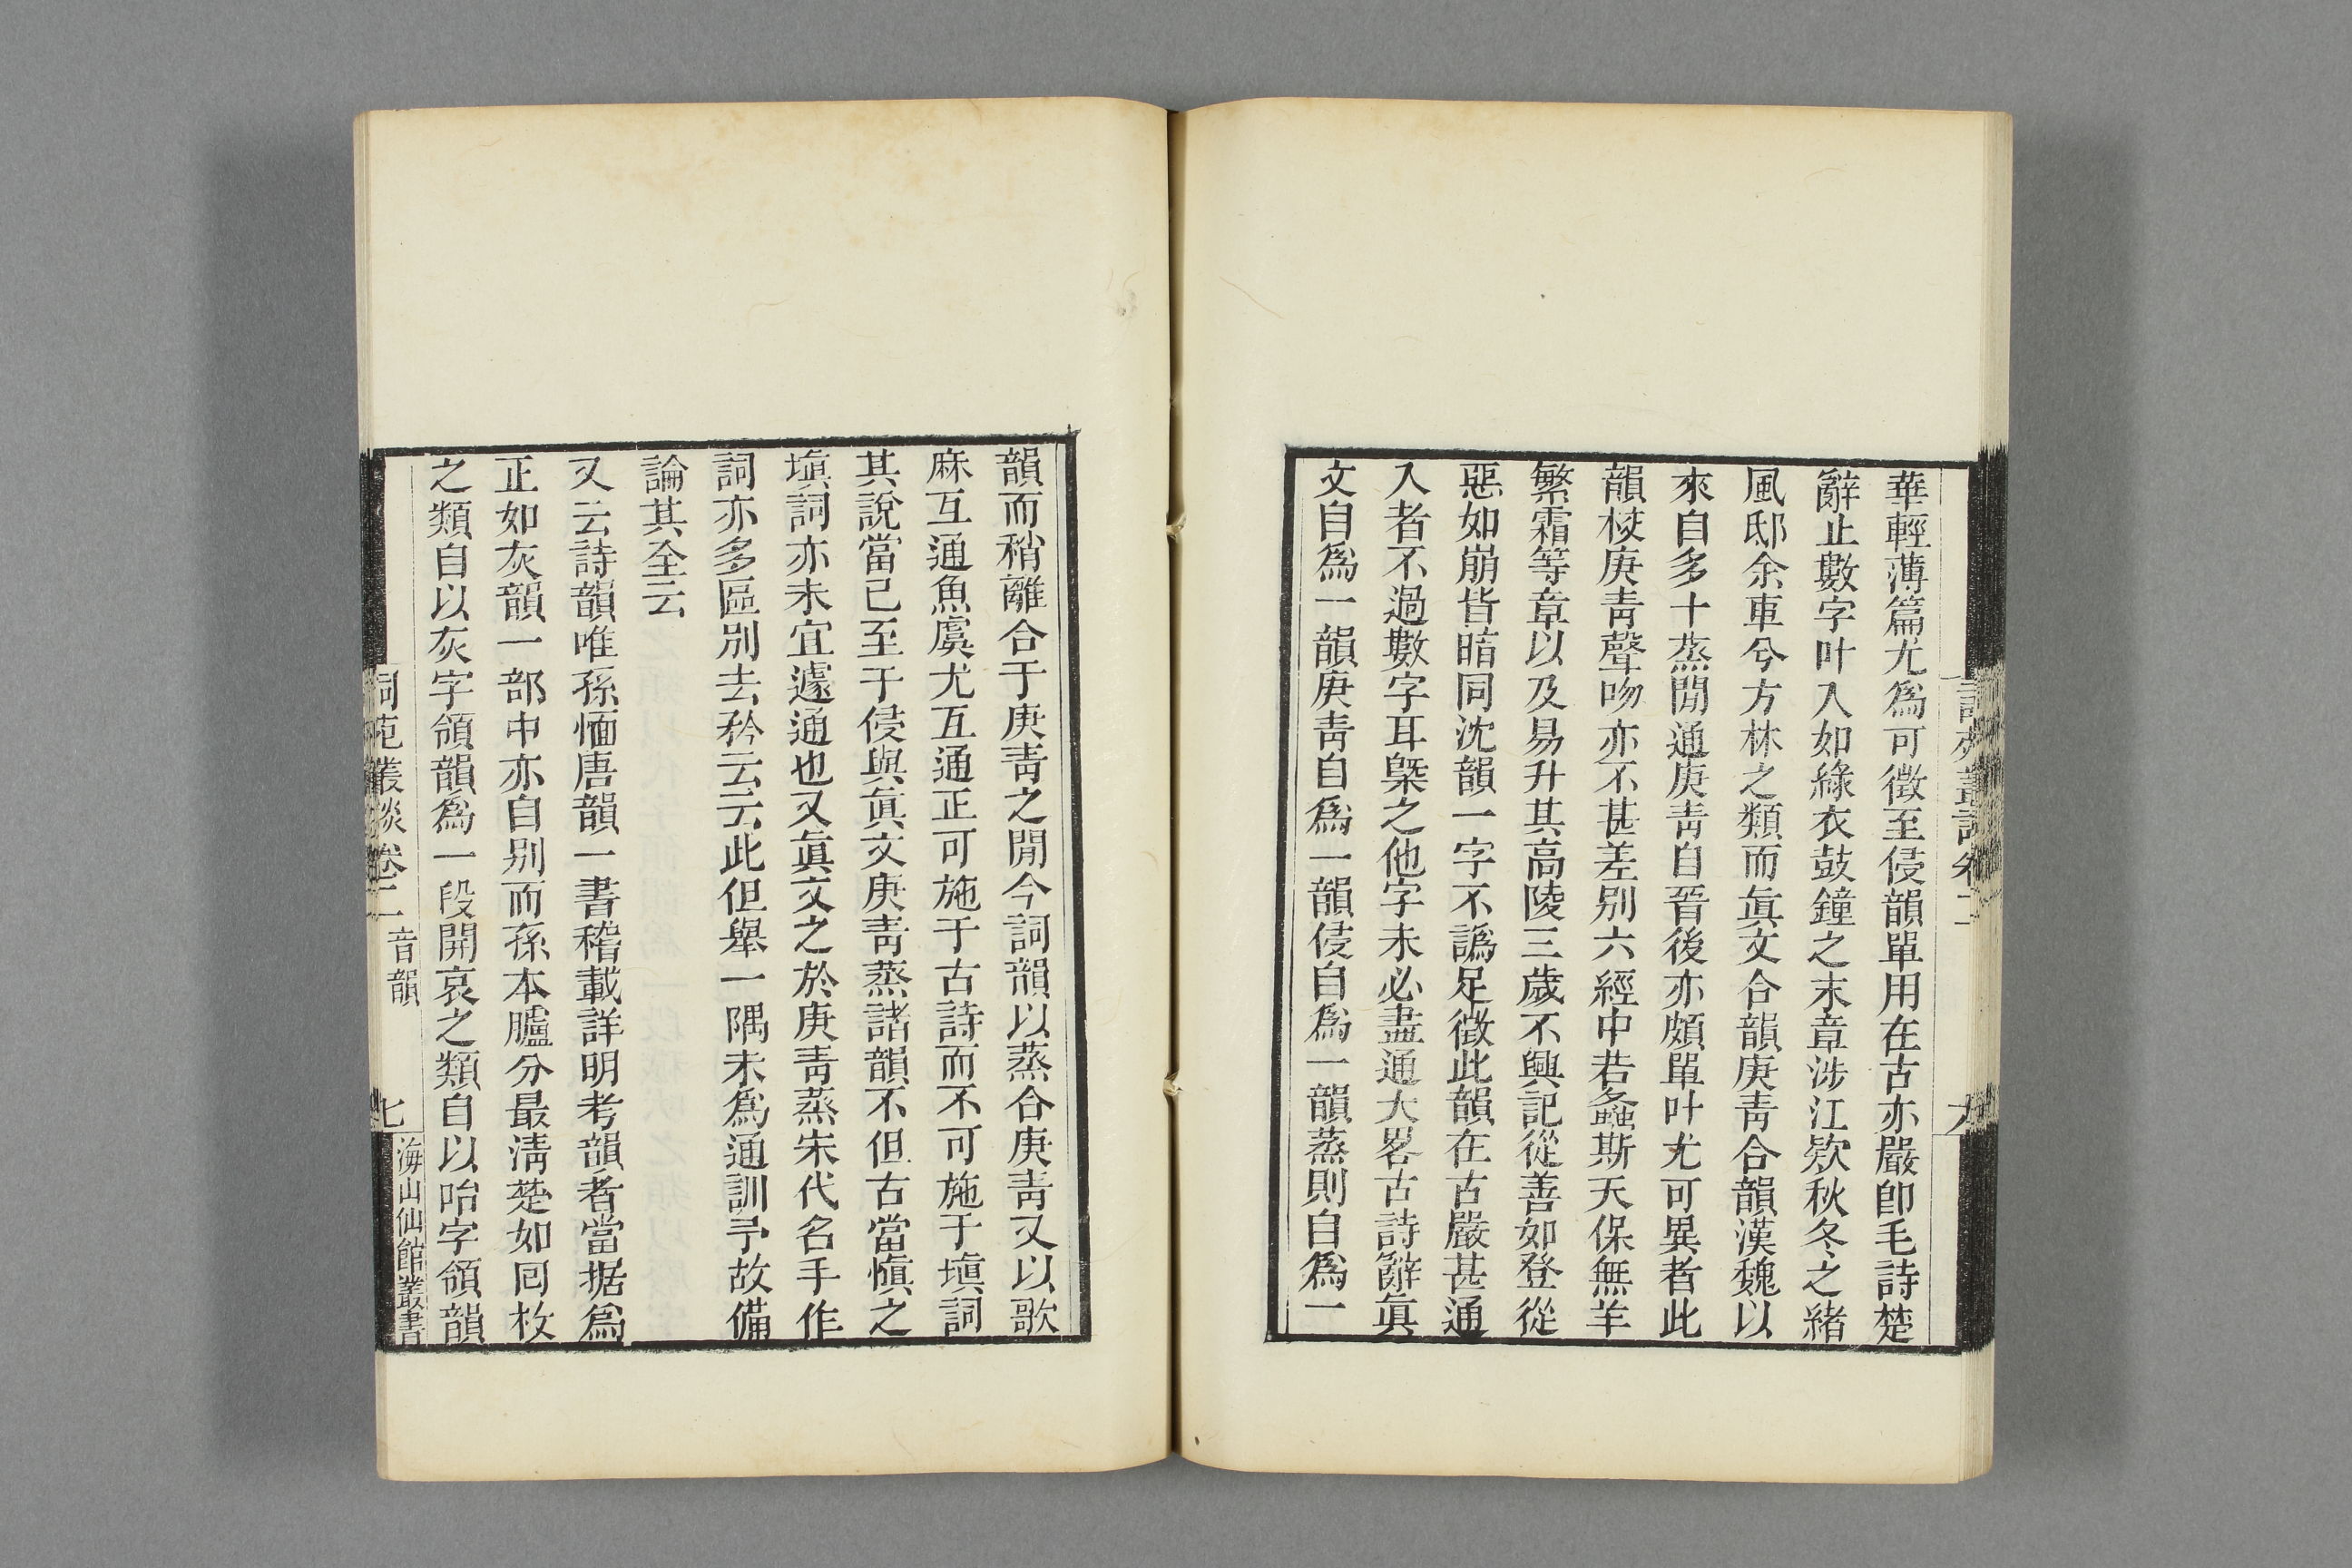 華輕薄篇尤爲可徵至侵韻單用在古亦嚴卽毛詩楚
辭止數字叶入如綠衣鼓鐘之末章涉江欵秋冬之緒
風邸余車兮方林之類而眞文合韻庚靑合韻漢魏以
來自多十蒸閒通庚靑自晉後亦頗單叶尤可異者此
韻校庚靑聲吻亦不甚差別六經中若螽斯天保無羊
繁霜等章以及易升其高陵三歲不興記從善如登從
惡如崩皆暗同沈韻一字不譌足徵此韻在古嚴甚通
入者不過數字耳槩之他字未必盡通大畧古詩辭眞
文自爲一韻庚靑自爲一韻侵自爲一韻蒸則自爲一
韻而稍離合于庚靑之閒今詞韻以蒸合庚靑又以歌
麻互通魚虞尤互通正可施于古詩而不可施于塡詞
其說當已至于侵與眞文庚靑蒸諸韻不但古當愼之
塡詞亦未宜遽通也又眞文之於庚靑蒸宋代名手作
詞亦多區別去矜云云此但舉一隅未爲通訓予故備
論其全云
又云詩韻唯孫愐唐韻一書稽載詳明考韻者當据爲
正如灰韻一部中亦自別而孫本臚分最淸楚如回枚
之類自以灰字領韻爲一段開哀之類自以咍字領韻
詞苑叢談卷二 音韻 七 海山仙館叢書